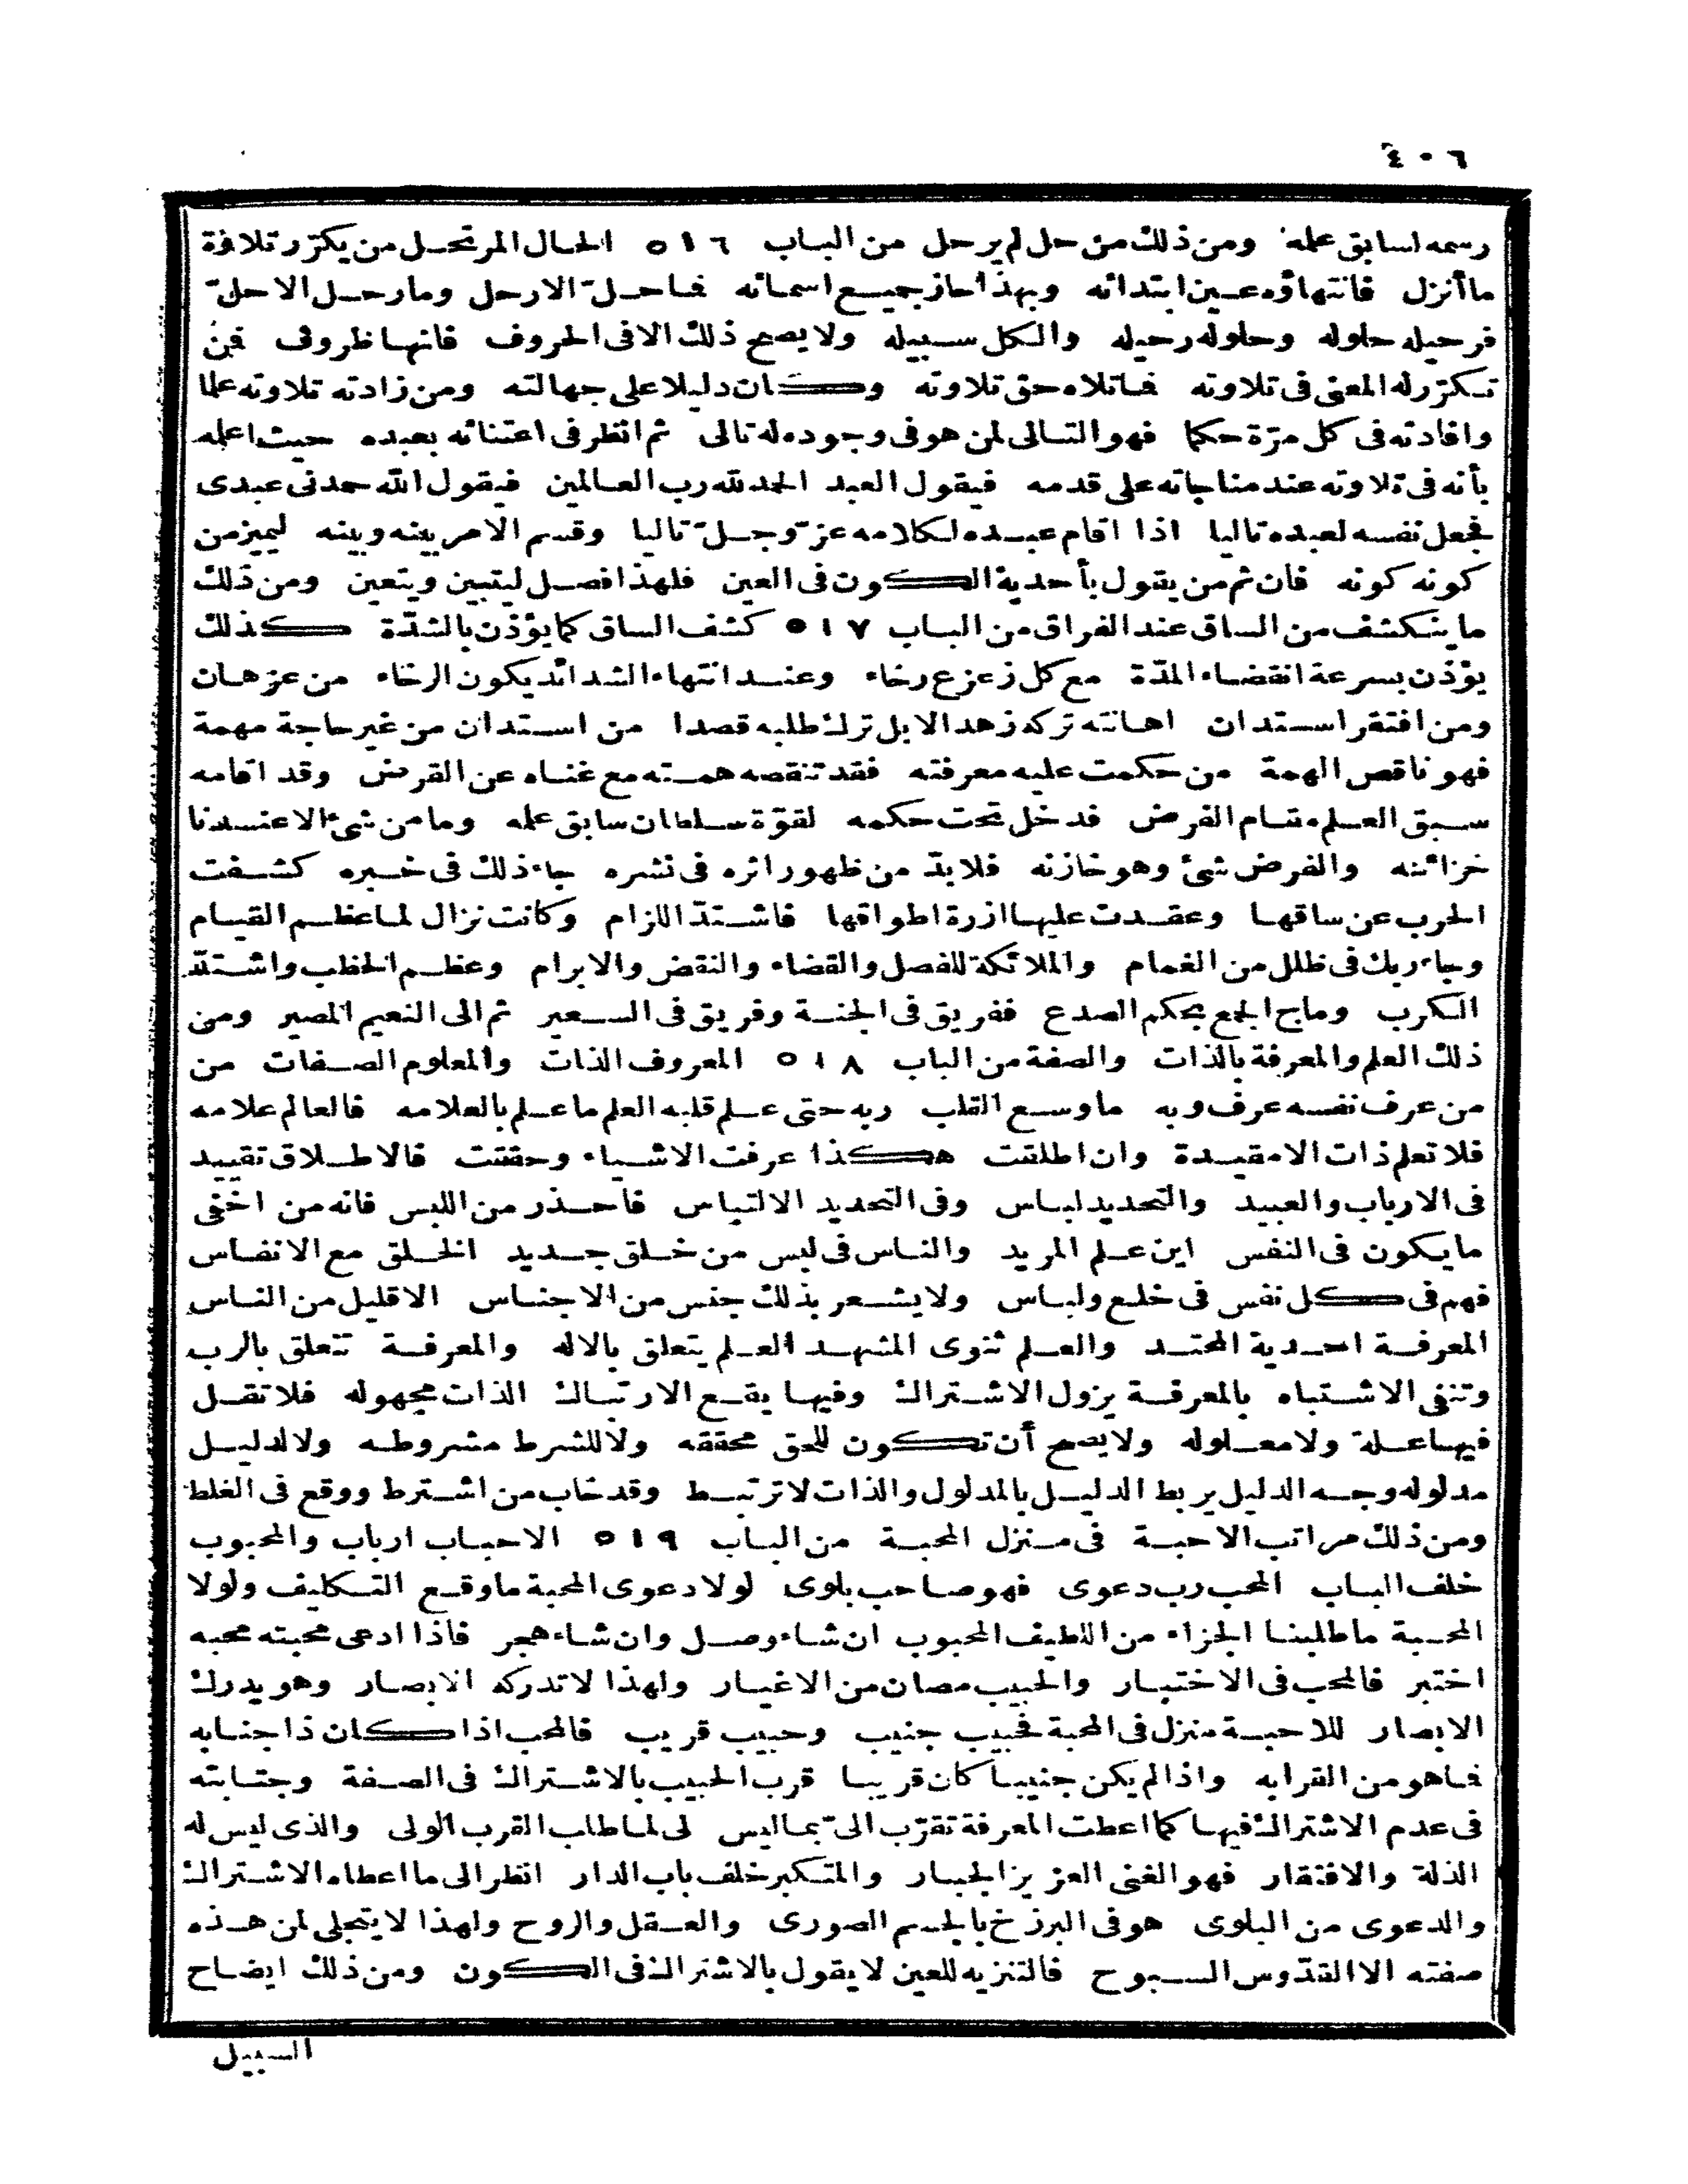 ٤٠٦
رسمه اسابق علمه ومن ذلك من حل لم يرحل من الباب ٥١٦ الحال المرتحل من يكرّر تلاوة
ما أنزل فانتهاؤه عين ابتدائه وبهذا حاز جميع اسمائه فما حلّ الا رحل وما رحل الا حلّ
فرحيله حلوله وحلوله رحيله والكل سبيله ولا يصح ذلك الا فى الحروف فانها ظروف فمن
تكرّر له المعنى فى تلاوته فما تلاه حق تلاوته وكان دليلا على جهالته ومن زادته تلاوته علما
وافادته فى كل مرّة حكما فهو التالى لمن هو فى وجوده له تالى ثم انظر فى اعتنائه بعبده حيث اعلمه
بأنه فى تلاوته عند مناجاته على قدمه فيقول العبد الحمد لله رب العالمين فيقول الله حمدنى عبدى
فجعل نفسه لعبده تاليا اذا اقام عبده لكلامه عزّ وجلّ تاليا وقسم الامر بينه وبينه ليميز من
كونه كونه فان ثم من يقول بأحدية الكون فى العين فلهذا فصل ليتبين ويتعين ومن ذلك
ما ينكشف من الساق عند الفراق من الباب ٥١٧ كشف الساق كما يؤذن بالشدّة كذلك
يؤذن بسرعة انقضاء المدّة مع كل زعزع رخاء وعند انتهاء الشدائد يكون الرخاء من عز هان
ومن افتقر استدان اهانته تركه زهد الابل ترك طلبه قصدا من استدان من غير حاجة مهمة
فهو ناقص الهمة من حكمت عليه معرفته فقد تنقصه همته مع غناه عن القرض وقد اقامه
سبق العلم مقام الفرض فدخل تحت حكمه لقوّة سلطان سابق علمه وما من شئ الا عندنا
خزائنه والفرض شئ وهو خازنه فلا بدّ من ظهور اثره فى نشره جاء ذلك فى خبره كشفت
الحرب عن ساقها وعقدت عليها ازرة اطواقها فاشتدّ اللزام وكانت نزال لما عظم القيام
وجاء ربك فى ظلل من الغمام والملائكة للفصل والقضاء والنقض والابرام وعظم الخطب واشتدّ
الكرب وماج الجمع بحكم الصدع ففريق فى الجنة وفريق فى السعير ثم الى النعيم المصير ومن
ذلك العلم والمعرفة بالذات والصفة من الباب ٥١٨ المعروف الذات والمعلوم الصفات من
من عرف نفسه عرف ربه ما وسع القلب ربه حتى علم قلبه العلم ما علم بالعلامه فالعالم علامه
فلا تعلم ذات الا مقيدة وان اطلقت هكذا عرفت الاشياء وحققت فالاطلاق تقييد
فى الارباب والعبيد والتحديد لباس وفى التحديد الالتباس فاحذر من اللبس فانه من اخفى
ما يكون فى النفس اين علم المريد والناس فى لبس من خلق جديد الخلق مع الانفاس
فهم فى كل نفس فى خلع ولباس ولا يشعر بذلك جنس من الاجناس الا قليل من الناس
المعرفة احدية المحتد والعلم ثنوى المشهد العلم يتعلق بالاله والمعرفة تتعلق بالرب
وتنفى الاشتباه بالمعرفة يزول الاشتراك وفيها يقع الارتباك الذات مجهوله فلا تقل
فيها علة ولا معلوله ولا يصح أن تكون للحق محققه ولا للشرط مشروطه ولا لدليل
مدلوله وجه الدليل يربط الدليل بالمدلول والذات لا ترتبط وقد خاب من اشترط ووقع فى الغلط
ومن ذلك مراتب الاحبة فى منزل المحبة من الباب ٥١٩ الاحباب ارباب والمحبوب
خلف الباب المحب رب دعوى فهو صاحب بلوى لولا دعوى المحبة ما وقع التكليف ولولا
المحبة ما طلبنا الجزاء من اللطيف المحبوب ان شاء وصل وان شاء هجر فاذا ادعى محبته محبه
اختبر فالمحب فى الاختبار والحبيب مصان من الاغيار ولهذا لا تدركه الابصار وهو يدرك
الابصار للاحبة منزل فى المحبة فحبيب جنيب وحبيب قريب فالمحب اذا كان ذا جنابه
فما هو من القرابه واذا لم يكن جنيبا كان قريبا قرب الحبيب بالاشتراك فى الصفة وجنابته
فى عدم الاشتراك فيها كما اعطت المعرفة تقرّب الىّ بما ليس لى لما طلب القرب الولى والذى ليس له
الذلة والافتقار فهو الغنى العزيز الجبار والمتكبر خلف باب الدار انظر الى ما اعطاه الاشتراك
والدعوى من البلوى هو فى البرزخ بالجسم الصورى والعقل والروح ولهذا لا يتجلى لمن هذه
صفته الا القدّوس السبوح فالتنزيه للعين لا يقول بالاشتراك فى الكون ومن ذلك ايضاح
السبيل